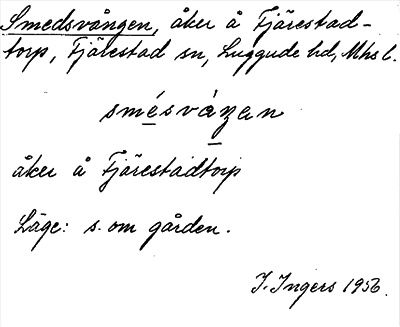 Smedsvången, åker å Fjärestad-
torp, Fjärestad sn, Luggude hd, Mhs l.
smésvàŋan
åker å Fjärestadtorp
Läge: s. om gården.
I. Ingers 1956.